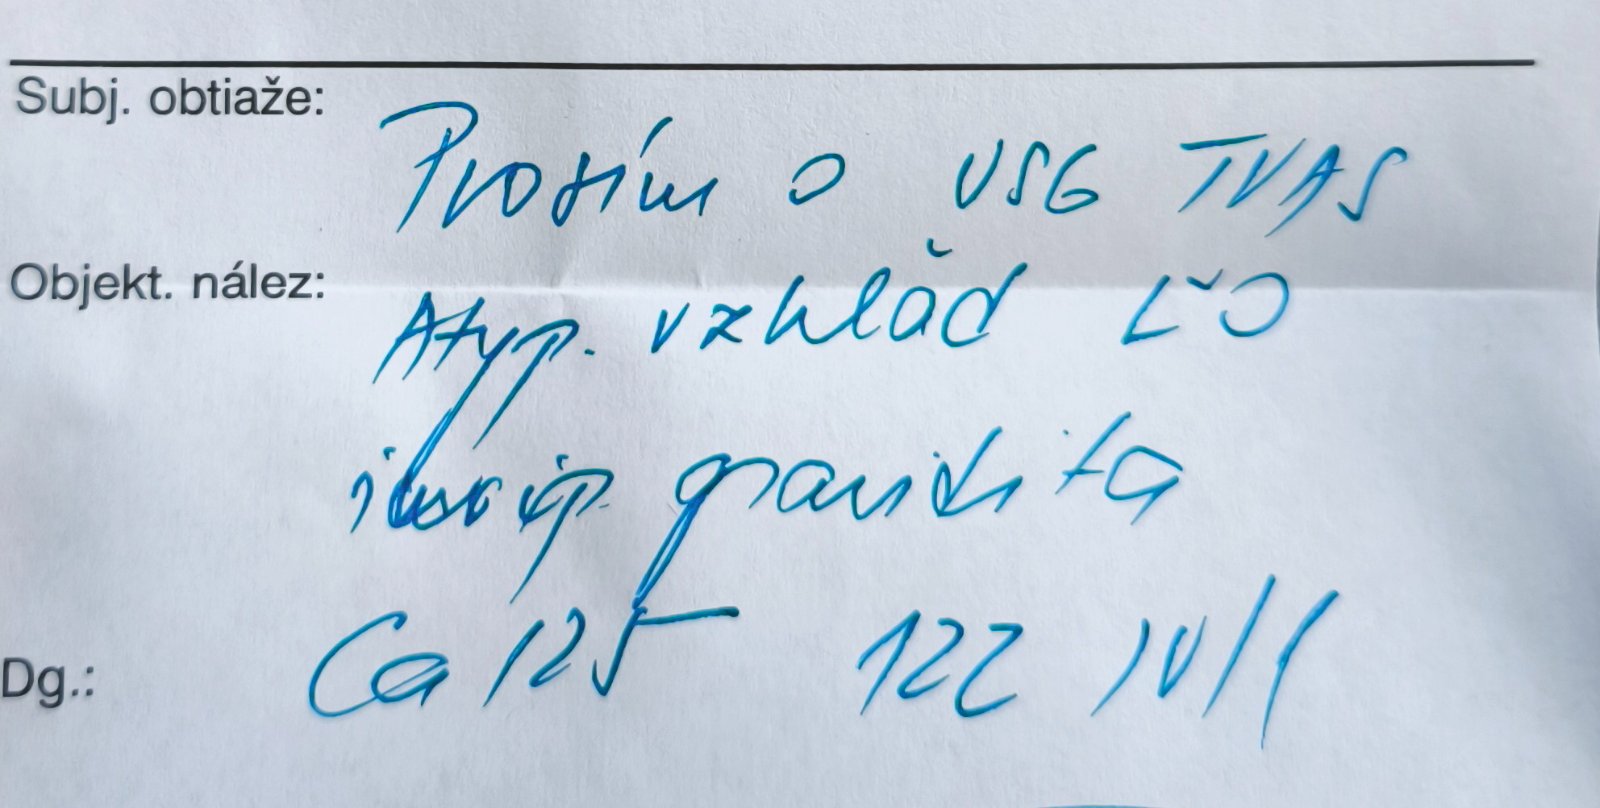 Subj. obtiaže:
Prosím o USG TVAS
Objekt. nález:
Atyp. vzhlăd ĽO
incip. gravidita
Dg.:
Ca 125 122 IU/l